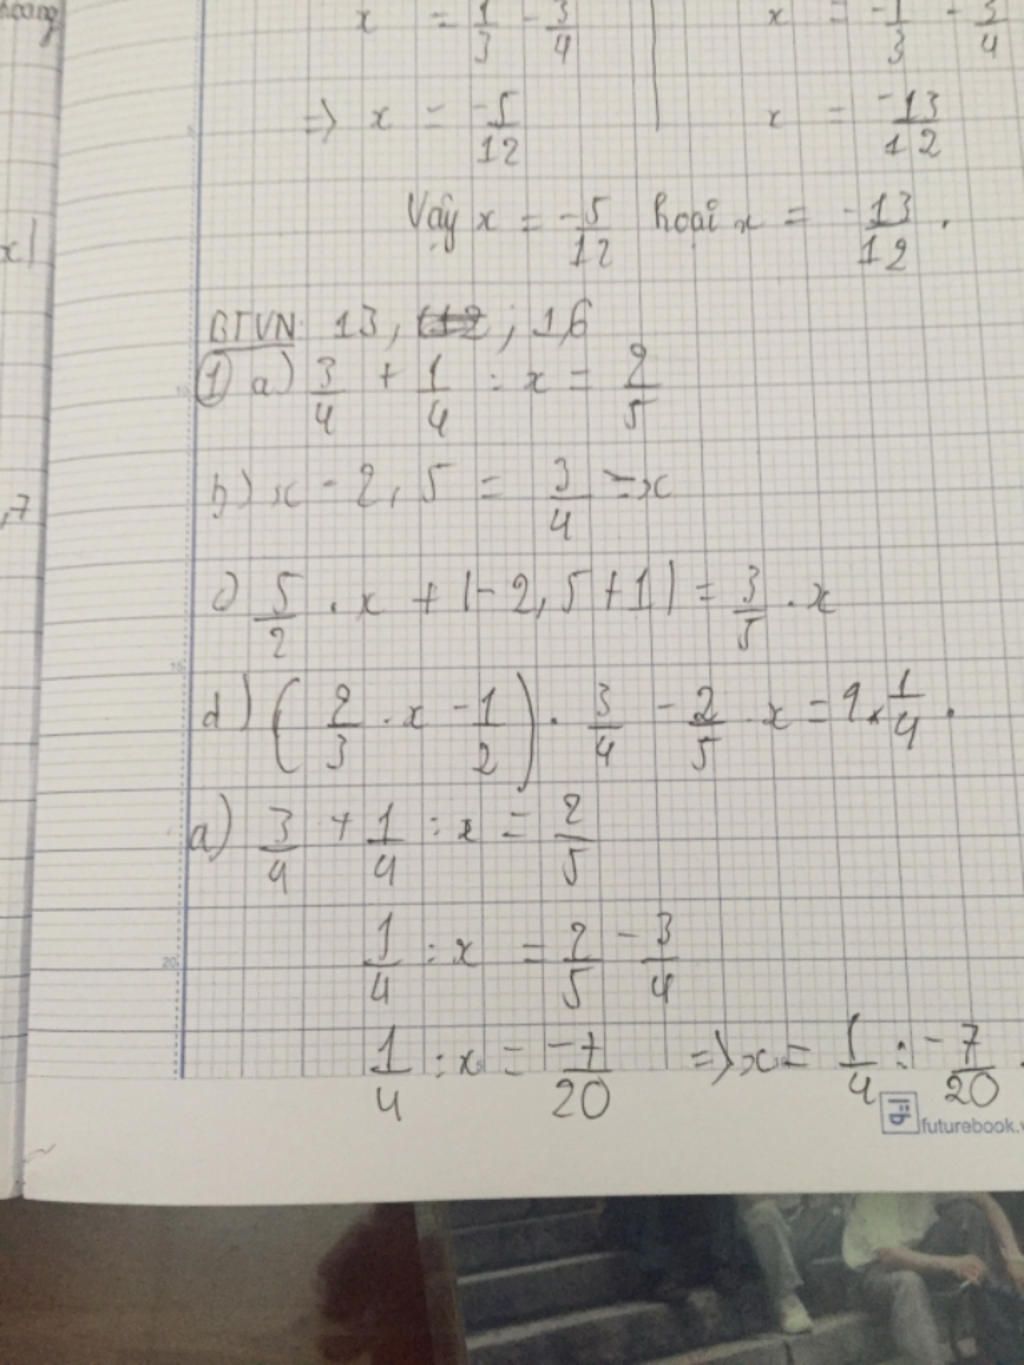 hoang
x = 1/3 - 3/4 x = -1/3 - 3/4
=> x = -5/12 x = -13/12
Vậy x = -5/12 hoặc x = -13/12 .
x|
BTVN: 13, ; 16
1 a) 3/4 + 1/4 : x = 2/5
b) x - 2,5 = 3/4 - x
,7
c) 5/2 . x + |-2,5 + 1| = 3/5 . x
d) (2/3 . x - 1/2) . 3/4 - 2/5 . x = 1 . 1/4 .
a) 3/4 + 1/4 : x = 2/5
1/4 : x = 2/5 - 3/4
1/4 : x = -7/20 => x = 1/4 : -7/20
futurebook.v